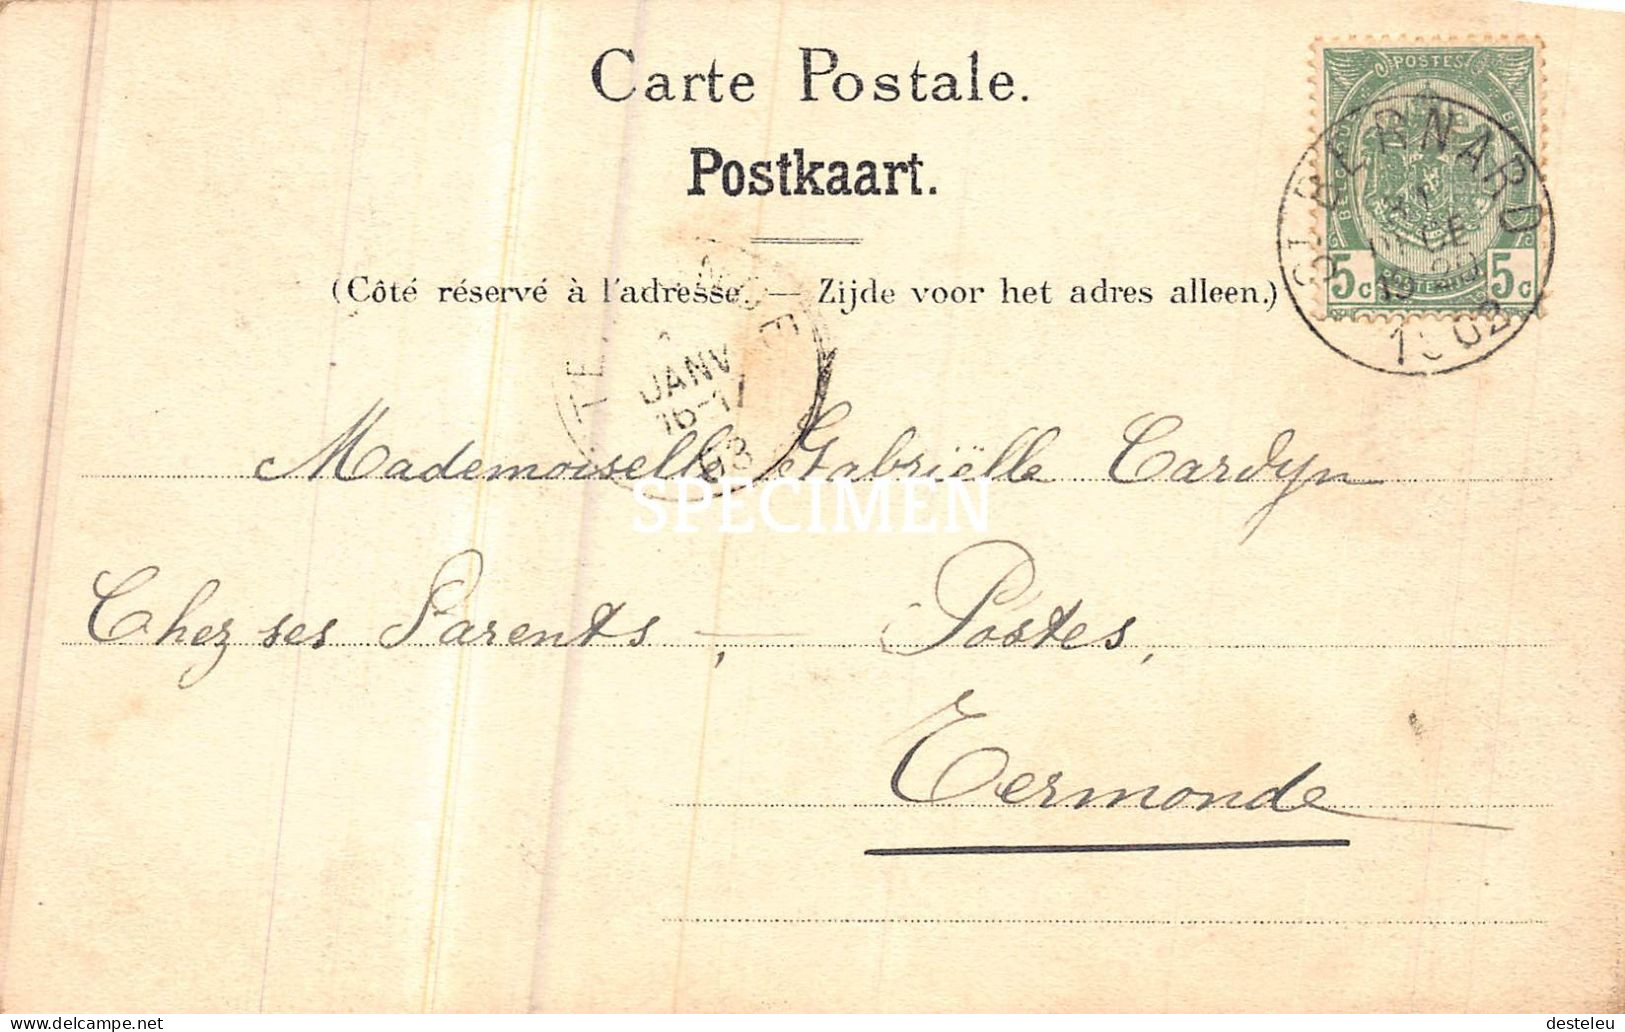 Carte Postale.
Postkaart.
(Côté réservé à l'adresse. — Zijde voor het adres alleen.)
POSTES
5c 5c
ST BERNARD
31
DECE
19-20
1902
JANV
16-17
03
Mademoiselle Gabriëlle Cardyn
Chez ses Parents, — Postes,
Termonde
SPECIMEN
desteleu